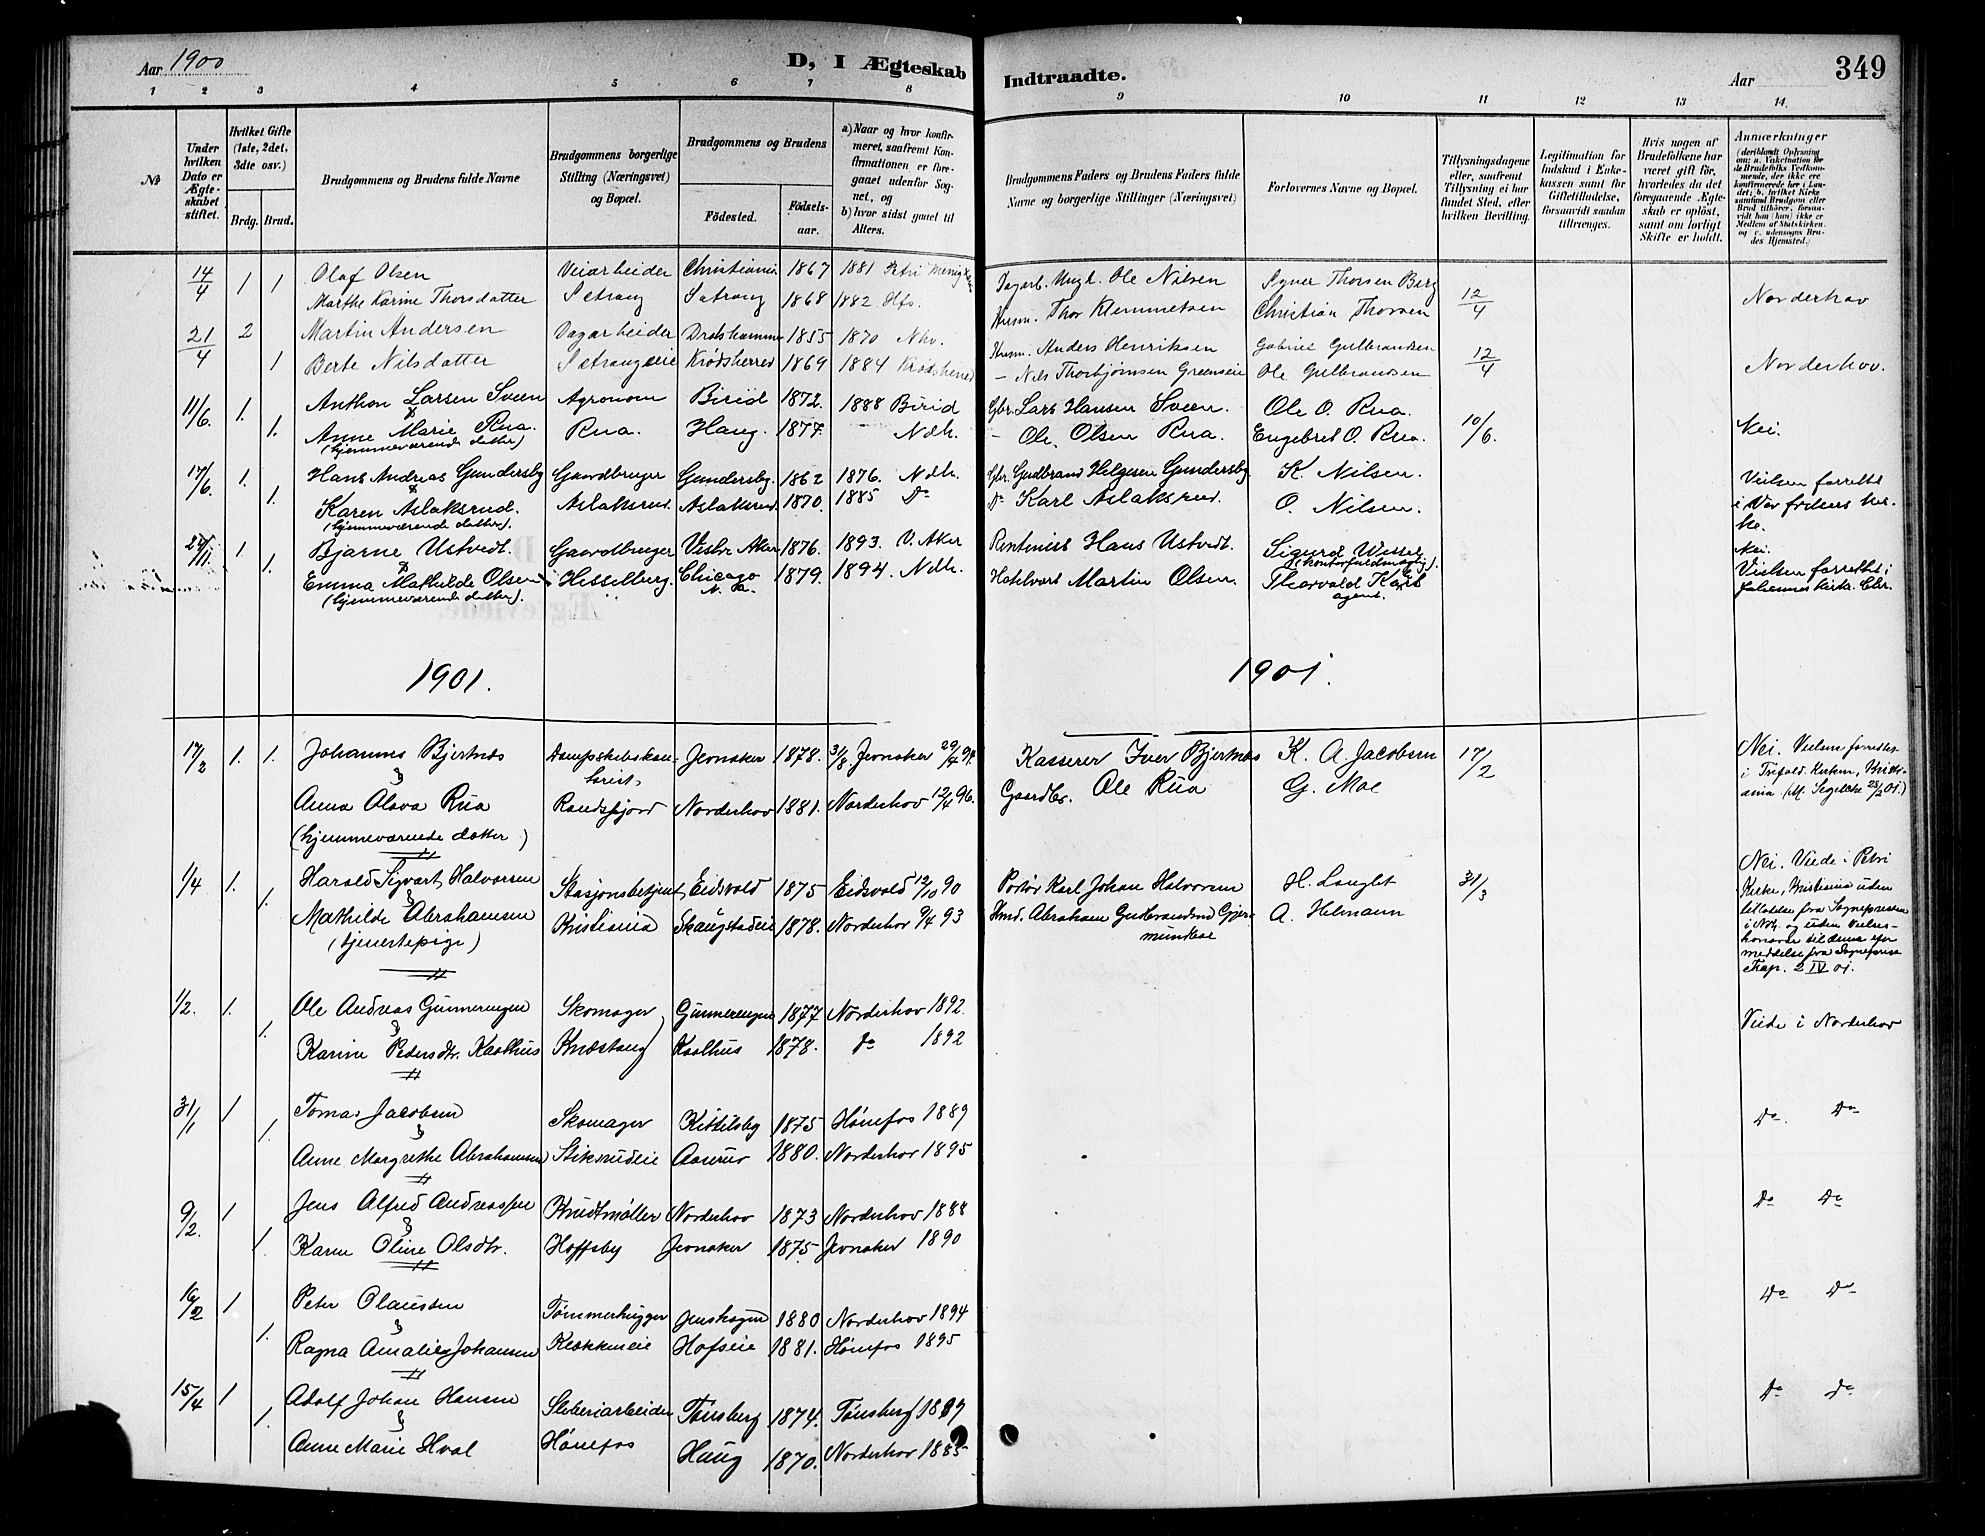 Aar 1900
D, I Ægteskab
Indtraadte.
Aar
349
1 2 3 4 5 6 7 8
9 10 11 12 13 14.
No
Under hvilken Dato er Ægteskabet stiftet.
Hvilket Gifte (1ste, 2det, 3dte osv.)
Brdg. Brud.
Brudgommens og Brudens fulde Navne
Brudgommens borgerlige Stilling (Næringsvei) og Bopæl.
Brudgommens og Brudens
Fødested.
Fødselsaar.
a) Naar og hvor konfirmeret, saafremt Konfirmationen er foregaaet udenfor Sognet, og
b) hvor sidst gaaet til Alters.
Brudgommens Faders og Brudens Faders fulde Navne og borgerlige Stillinger (Næringsvei)
Forlovernes Navne og Bopæl.
Tillysningsdagene eller, saafremt Tillysning ei har fundet Sted, efter hvilken Bevilling.
Legitimation for Indskud i Enkekassen samt for Giftetilladelse, forsaavidt saadan tiltrænges.
Hvis nogen af Brudefolkene har været gift før, hvorledes da det foregaaende Ægteskab er opløst, samt om lovligt Skifte er holdt.
Anmærkninger
(deriblandt Oplysning om: a. Vakcination for de Brudefolks Vedkommende, der ikke ere konfirmerede her i Landet; b. hvilket Kirkesamfund Brudgom eller Brud tilhører, forsaavidt han (hun) ikke er Medlem af Statskirken. og c. udensogns Brudes Hjemsted.)
14/4 1 1 Olaf Olsen Veiarbeider Christiania 1867 1881 Petri Menig Ungk. Ole Nilsen Thorsen Berg
Marthe Karine Thorsdatter Setrang Setrang 1868 1882 Hfs. Husm. Thor Klemmetsen Christian Thorsen 12/4 Norderhov
21/4 2 Martin Andersen Dagarbeider 1855 1870 Nhv. Husm. Anders Henriksen Gabriel Gulbrandsen
1 Berte Nilsdatter Setrangseie Krødsherred 1869 1884 Krødsherred - Nils Thorbjørnsen Grønseie Ole Gulbrandsen 12/4 Norderhov.
11/6. 1. Anthon Larsen Sveen Agronom Birid 1872. 1888 Birid Gbr. Lars Hansen Sveen. Ole O. Rua.
&
1. Anne Marie Rua. Rua. Haug. 1877. Ndh. - Ole Olsen Rua. Engebret O. Rua. 10/6. Nei.
(hjemmeværende datter)
17/6. 1. Hans Andreas Gundersby Gaardbruger Gundersby. 1862 1876. Ndh. Gbr. Gudbrand Helgesen Gundersby K. Nilsen. Vielsen forrettet
&
1. Karen Aslaksrud. Aslaksrud. Aslaksrud. 1870. 1885 Do Do Karl Aslaksrud. O. Nilsen. i Vor frelsers kirke.
(hjemmeværende datter).
24/11. 1. Bjarne Ustvedt. Gaardbruger Vestre Aker 1876. 1893. V. Aker Rentenist Hans Ustvedt. Sigurd Wessel Nei.
& (kontorfuldmægtig).
1. Emma Mathilde Olsen Hesselberg. Chicago 1879. 1894. Ndh. Hotelvært Martin Olsen. Thorvald Vielsen forrettet i
(hjemmeværende datter). N. A. agent. Johannes kirke. Chr.
1901. 1901.
17/2 1. 1. Johannes Bjertnæs Dampskibskasserist, Jevnaker 1878. Jevnaker 29/4 94. Kasserer Iver Bjertnæs K. A. Jacobsen 17/2 Nei. Vielsen forrettet
&
Anna Olava Rua Randsfjord Norderhov 1881. Norderhov 12/4 96. Gaardbr. Ole Rua G. Moe i Trefold. Kirken, Kristiania
(hjemmeværende datter)
1/4 1. Harald Sigvart Halvorsen Stasjonsbetjent, Eidsvold 1875 Eidsvold 12/10 90 Portør Karl Johan Halvorsen H. Langlet 31/3 Nei. Viede i Petri
&
1. Mathilde Abrahamsen Kristiania Skaugstadeie 1878. Norderhov 9/4 93 Hmd. Abraham Gulbrandsen Gjermundboe A. Helmann Kirke, Kristiania uden
(tjenestepige) tilladelse fra Sognepresten
i Ndh. og uden vielseshonorar til denne efter
meddelse fra Sogneprest
Trap. 2 IV 01.
1/2. 1. Ole Andreas Gunnerengen Skomager Gunnerengen 1877 Norderhov 1892.
&
1. Karine Pedersdtr. Kaalhus Knæstang Kaalhus 1878. do 1892 Viede i Norderhov
31/1 1 Tomas Jacobsen Skomager Kittilsby 1875 Hønefos 1889 Do. Do
&
1. Anne Margrethe Abrahamsen Stiksrudeie Aaerud 1880. Norderhov 1895
9/2. 1 Jens Alfred Andreassen Kundtmøller Norderhov 1873 Norderhov 1888 Do Do
&
1. Karen Oline Olsdtr. Hoffsby Jevnaker 1875. Jevnaker 1890
16/2 1 Peter Olaussen Tømmerhugger Jenshagen 1880 Norderhov 1894 Do Do
&
1. Ragna Amalie Johansen Klækkeneie Hofseie 1881. Hønefos 1895
15/4 1 Adolf Johan Hansen Sliberiarbeider Tønsberg 1874. Tønsberg 1889 Do Do
&
1. Anne Marie Hval Hønefos Haug 1870. Norderhov 1885